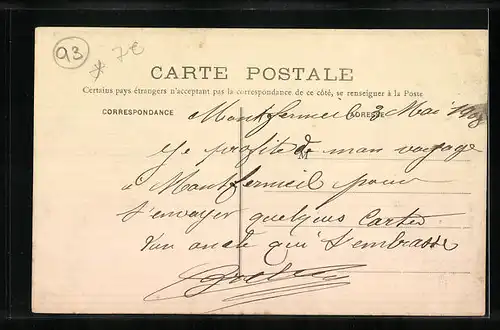 93
* 7€
CARTE POSTALE
Certains pays étrangers n'acceptant pas la correspondance de ce côté, se renseigner à la Poste
CORRESPONDANCE
ADRESSE
Montfermeil 3 Mai
M
Je profite de mon voyage
à Montfermeil pour
t'envoyer quelques Cartes
Ton oncle qui t'embrasse